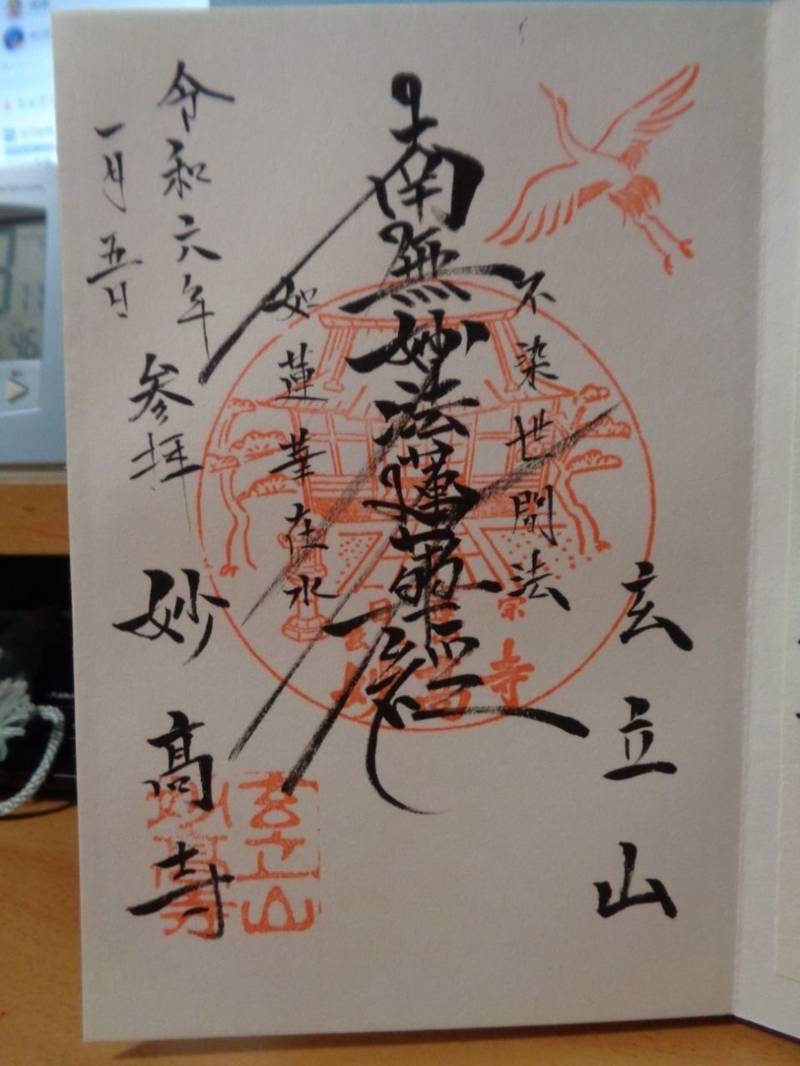 玄立山
不染世間法
南無妙法蓮華経
如蓮華在水
令和六年
一月五日
参拝
妙高寺
宗
妙高寺
玄立山
妙高寺